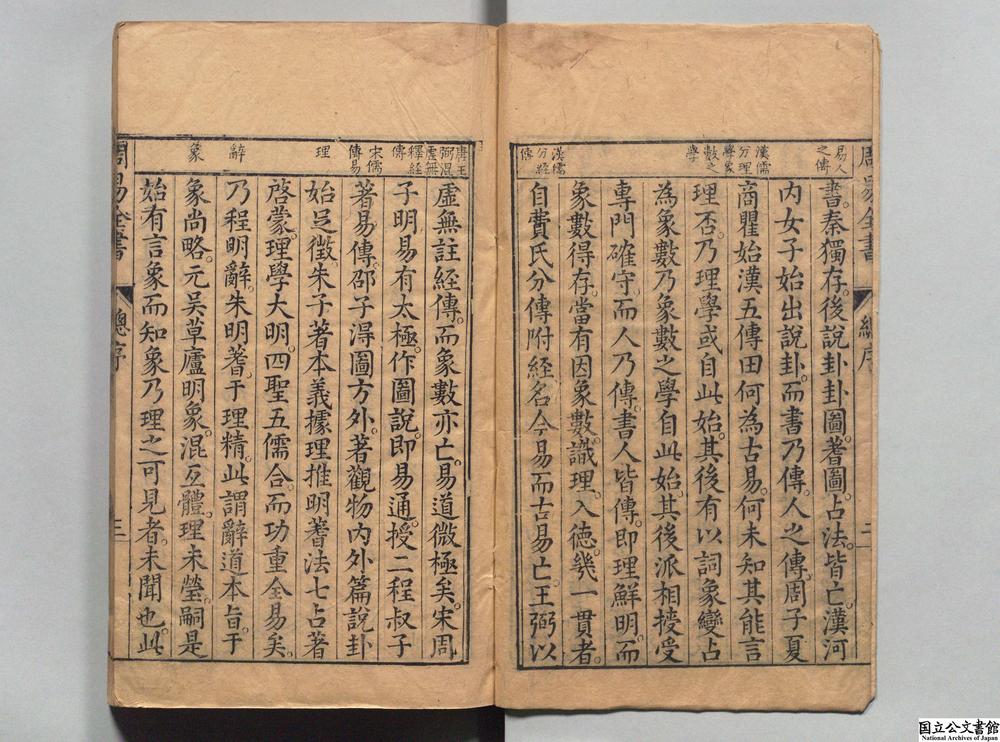 周易全書 總序 二
易人之傳
漢儒分理學象數之學
漢儒分經傳
書。秦獨存。後說卦卦圖蓍圖。占法。皆亡。漢河
內女子始出說卦。而書乃傳。人之傳。周子夏
商瞿始。漢五傳田何為古易。何未知其能言
理否。乃理學或自此始。其後有以詞象變占
為象數。乃象數之學自此始。其後派相授受
專門確守。而人乃傳。書人皆傳。即理鮮明。而
象數得存。當有因象數。識理。入德。幾一貫者。
自費氏分傳附經名今易。而古易亡。王弼以
唐王弼混虛無釋經傳
宋儒傳易
理
辭
象
虛無註經傳。而象數亦亡。易道微極矣。宋周
子明易有太極。作圖說。即易通。授二程。叔子
著易傳。邵子得圖方外。著觀物內外篇。說卦
始足徵。朱子著本義據理推明蓍法七占著
啓蒙。理學大明。四聖五儒合。而功重全易矣。
乃程明辭。朱明蓍。于理精。此謂辭道本旨。于
象尚略。元吳草廬明象。混互體。理未瑩。嗣是
始有言象而知象乃理之可見者。未聞也。此
周易全書 總序 三
国立公文書館
National Archives of Japan